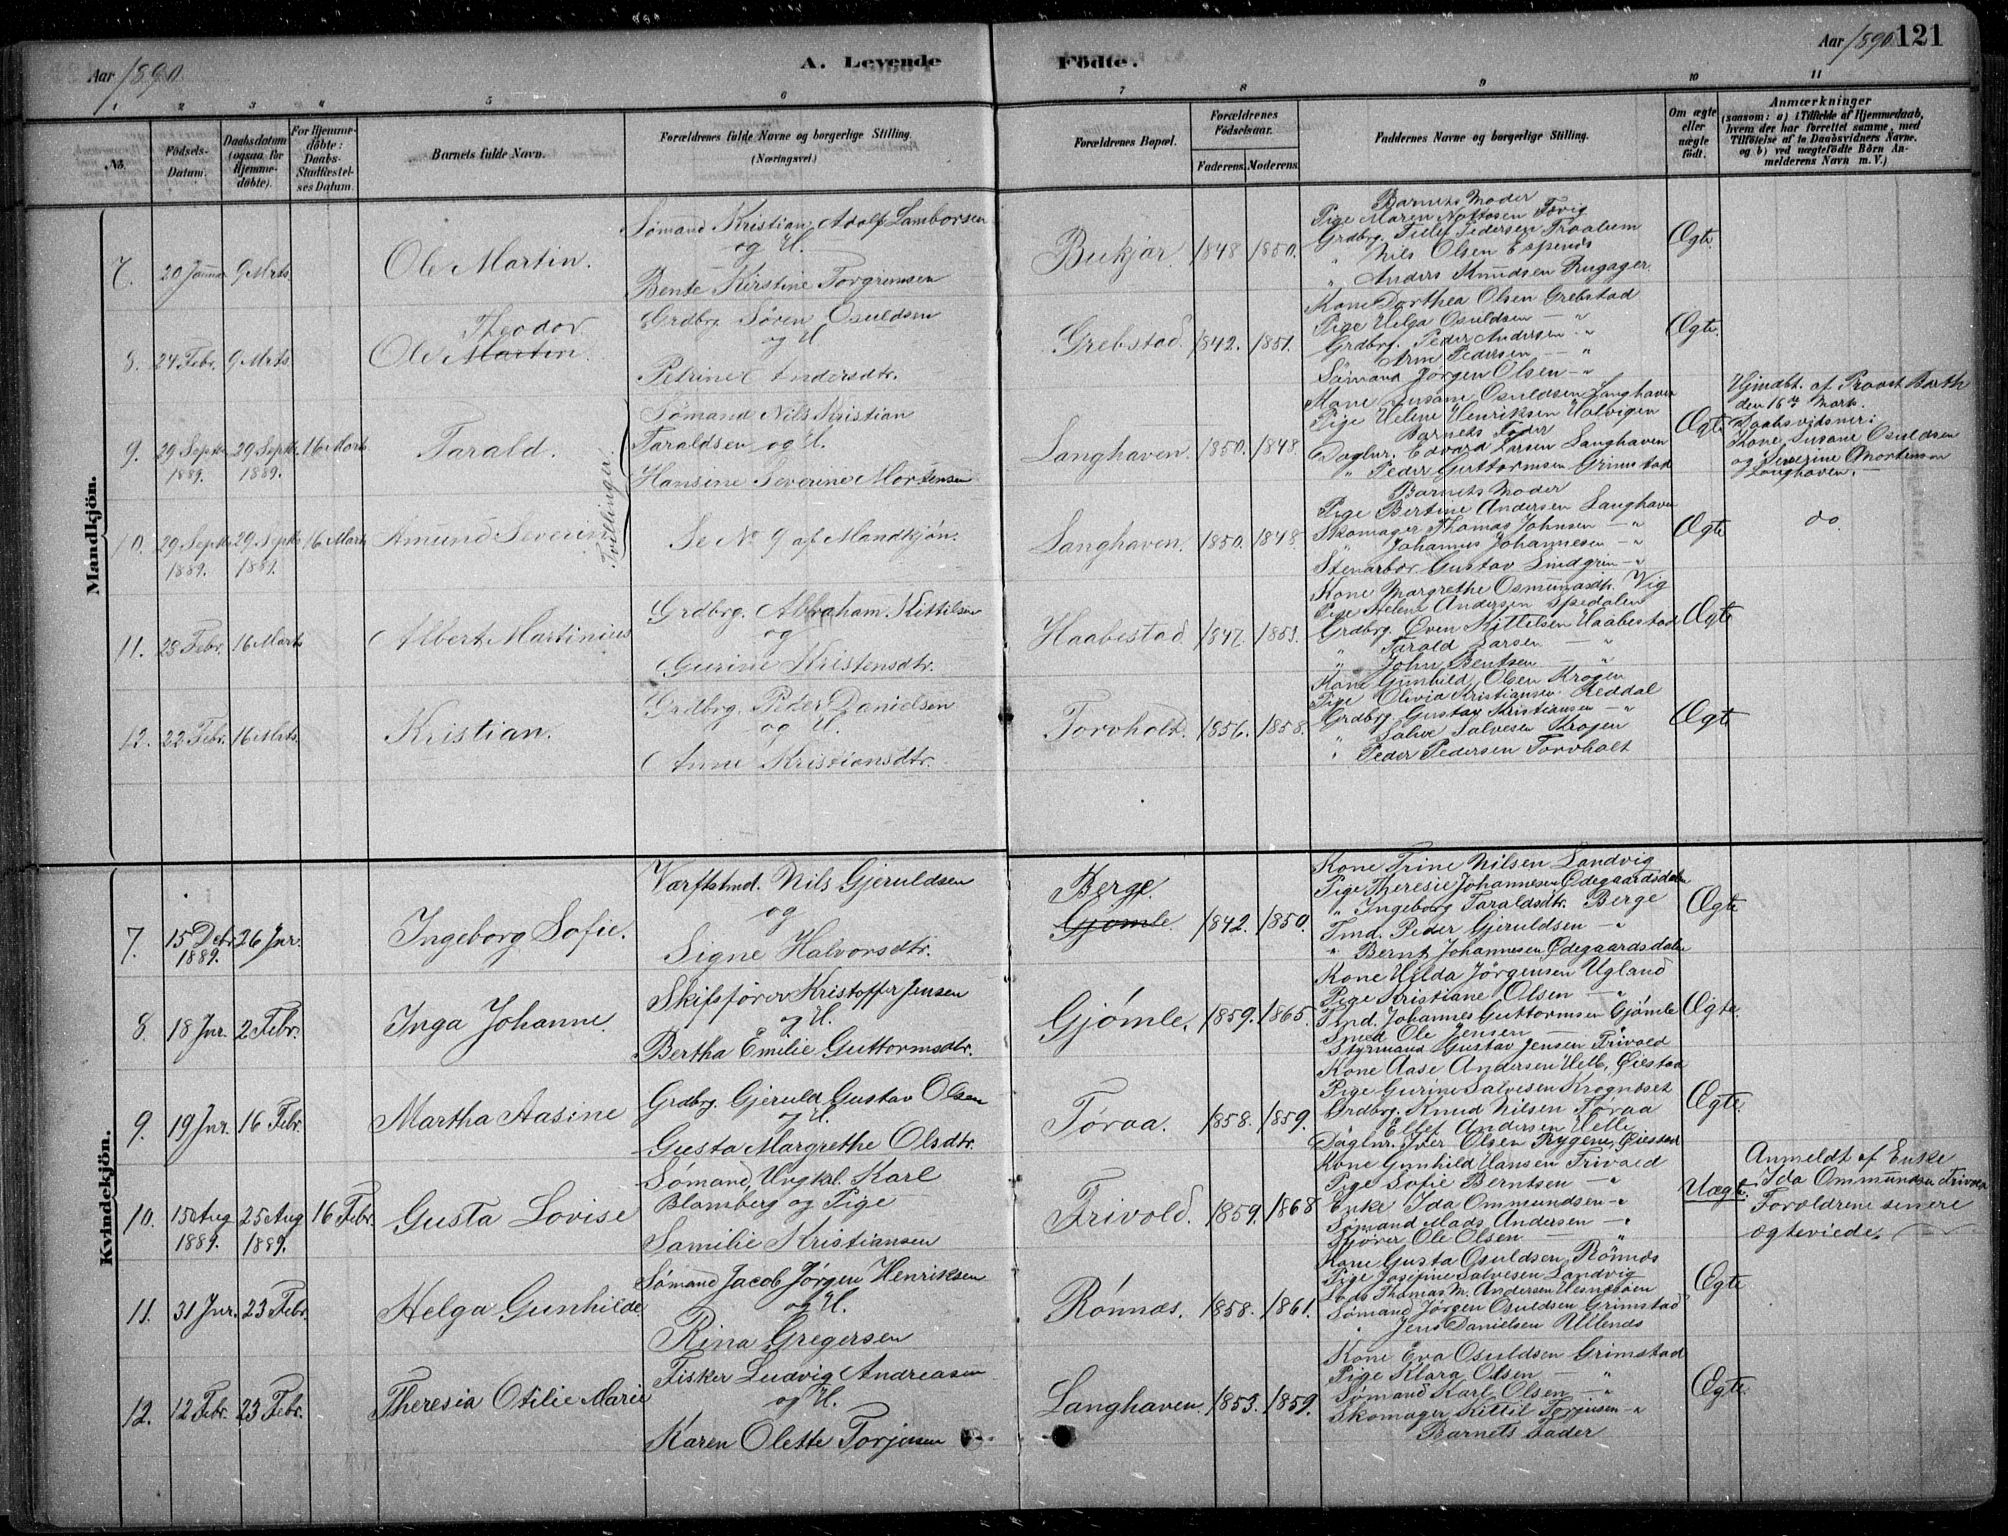 Aar 1890.
A. Levende
Födte.
Aar 1890. 121
1 2 3 4 5 6 7 8 9 10 11
No.
Födsels-Datum.
Daabsdatum (ogsaa for Hjemmedöbte).
For Hjemmedöbte: Daabs-Stadfæstelses Datum.
Barnets fulde Navn.
Forældrenes fulde Navne og borgerlige Stilling. (Næringsvei.)
Forældrenes Bopæl.
Forældrenes Födselsaar.
Faderens. Moderens.
Faddernes Navne og borgerlige Stilling.
Om ægte eller uægte födt.
Anmærkninger
(saasom: a) i Tilfælde af Hjemmedaab, hvem der har forrettet samme, med Tilföielse af to Daabsvidners Navne. og b) ved uægtefödte Börn Anmelderens Navn m. V.)
Mandkjön.
7. 20 Januar 9 Mrts
Ole Martin.
Sømand Kristian Adolf Lamborsen
og H.
Bente Kirstine Torgrimsen
Bukjær. 1848 1850.
Barnets Moder
Pige Maren
Grdbrg. Tellef Pedersen
" Nils Olsen Espenes
" Anders Knudsen Rugager
Ægte.
8. 24 Febr. 9 Mrts.
Theodor
Ole Martin.
Grdbrg. Søren Osuldsen
og H
Petrine Andersdtr.
Grebstad. 1842. 1851.
Kone Dorthea Olsen Grebstad
Pige Helga Osuldsen — "
Grdbrg. Peder Andersen "
Arne Pedersen — "
Sømand Jørgen Olsen — "
Ægte.
9. 29 Septb. 1889. 29 Septb. 1889. 16 Marts
Tarald.
Tvillinger
Sømand Nils Kristian
Taraldsen og H.
Hansine Severine Mortensen
Langhaven. 1850. 1848.
Kone Susane Osuldsen Langhaven
Pige Helene Henriksen Halvigen
Barnets Fader
Daglnr. Edvard Larsen Langhaven
" Peder Guttormsen Grimstad
Ægte
Hjmdbt. af Provst Barth
den 16 Mart.
Daabsvidner:
Kone Susane Osuldsen
og Severine Mortensen
Langhaven.
10. 29 Septb. 1889. 29 Septb. 1889. 16 Marts
Amund Severin
Se No 9 af Mandkjøn.
Langhaven. 1850. 1848.
Barnets Moder
Pige Bertine Andersen Langhaven
Skomager Thomas Johnsen — "
" Johannes Johannesen — "
Stenarbdr. Gustav Lindgrin — "
Ægte
do.
11. 28 Febr. 16 Marts
Albert Martinius
Grdbrg. Abraham Kittilsen
og
Gurine Kristensdtr.
Haabestad 1847. 1853.
Kone Margrethe Osmundsdtr. Vig
Pige Helene Andersen Spedalen
Grdbrg. Øven Kittelsen Haabestad
" Tarald Larsen — "
" John Bentsen — "
Ægte
12. 22 Febr. 16 Mrts.
Kristian.
Grdbrg. Peder Danielsen
og H.
Anne Kristiansdtr.
Torvholt. 1856. 1858.
Kone Gunhild Olsen Krogen
Pige Olivia Kristiansen Reddal
Grdbrg. Gustav Kristiansen — "
" Salve Salvesen Krogen
" Peder Pedersen Torvholt
Ægte
Kvindekjön.
7. 15 Debr. 1889. 26 Jnr.
Ingeborg Sofie.
Værftstmd. Nils Gjeruldsen
og
Signe Halvorsdtr.
Berge.
Gjømle. 1842. 1850.
Kone Trine Nilsen Landvig
Pige Theresie Johannesen Ødegaardsdalen
" Ingeborg Taraldsdtr. Berge
Tmd. Peder Gjeruldsen — "
" Bernt Johannesen Ødegaardsdalen
Ægte
8. 18 Jnr. 2 Febr.
Inga Johanne.
Skifsfører Kristoffer Jensen
og H.
Bertha Emilie Guttormsdtr.
Gjømle. 1859. 1865.
Kone Hilda Jørgensen Ugland
Pige Kristiane Olsen — "
Tmd. Johannes Guttormsen Gjømle
Smed Ole Jensen — "
Styrmand Gustav Jensen Frivold
Ægte.
9. 19 Jnr. 16 Febr.
Martha Aasine
Grdbrg. Gjeruld Gustav Olsen
og H.
Gusta Margrethe Olsdtr.
Tøraa. 1858. 1859.
Kone Aase Andersen Helle, Øiestad
Pige Gurine Salvesen Krognæset
Grdbrg. Knud Nilsen Tøraa
" Ellef Andersen Helle
Daglnr. Iver Olsen Rygene, Øiestad
Ægte.
10. 15 Aug 1889. 25 Aug 1889. 16 Febr.
Gusta Lovise
Sømand, Ungkl. Karl
Blomberg og Pige
Samilie Kristiansen
Frivold. 1859. 1868
Kone Gunhild Hansen Frivold
Pige Sofie Berntsen — "
Enke Ida Ommundsen — "
Sømand Mads Andersen — "
Ole Olsen — "
Uægte.
Anmeldt af Enke
Ida Ommundsen Frivold
Forældrene senere
ægteviede.
11. 31 Jnr. 23 Febr.
Helga Gunhilde
Sømand Jacob Jørgen Henriksen
og H.
Rina Gregersen
Rønnæs. 1858. 1861.
Kone Gusta Osuldsen Rønnæs
Pige Josefine Salvesen Landvig
Lods Thomas M. Andersen Hesnæsøen
Sømand Jørgen Osuldsen Grimstad
" Jens Danielsen Ullenæs
Ægte
12. 12 Febr. 23 Febr.
Theresia Otilie Marie
Fisker Ludvig Andreasen
og H.
Karen Olette Torjusen
Langhaven. 1853. 1859.
Kone Eva Osuldsen Grimstad
Pige Klara Olsen — "
Sømand Karl Olsen — "
Skomager Kittil Torjusen — "
Barnets Fader
Ægte.